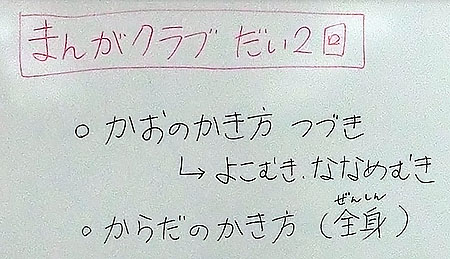 まんがクラブ だい2回
○ かおのかき方 つづき
↳ よこむき、ななめむき
○ からだのかき方 (全身)
ぜんしん